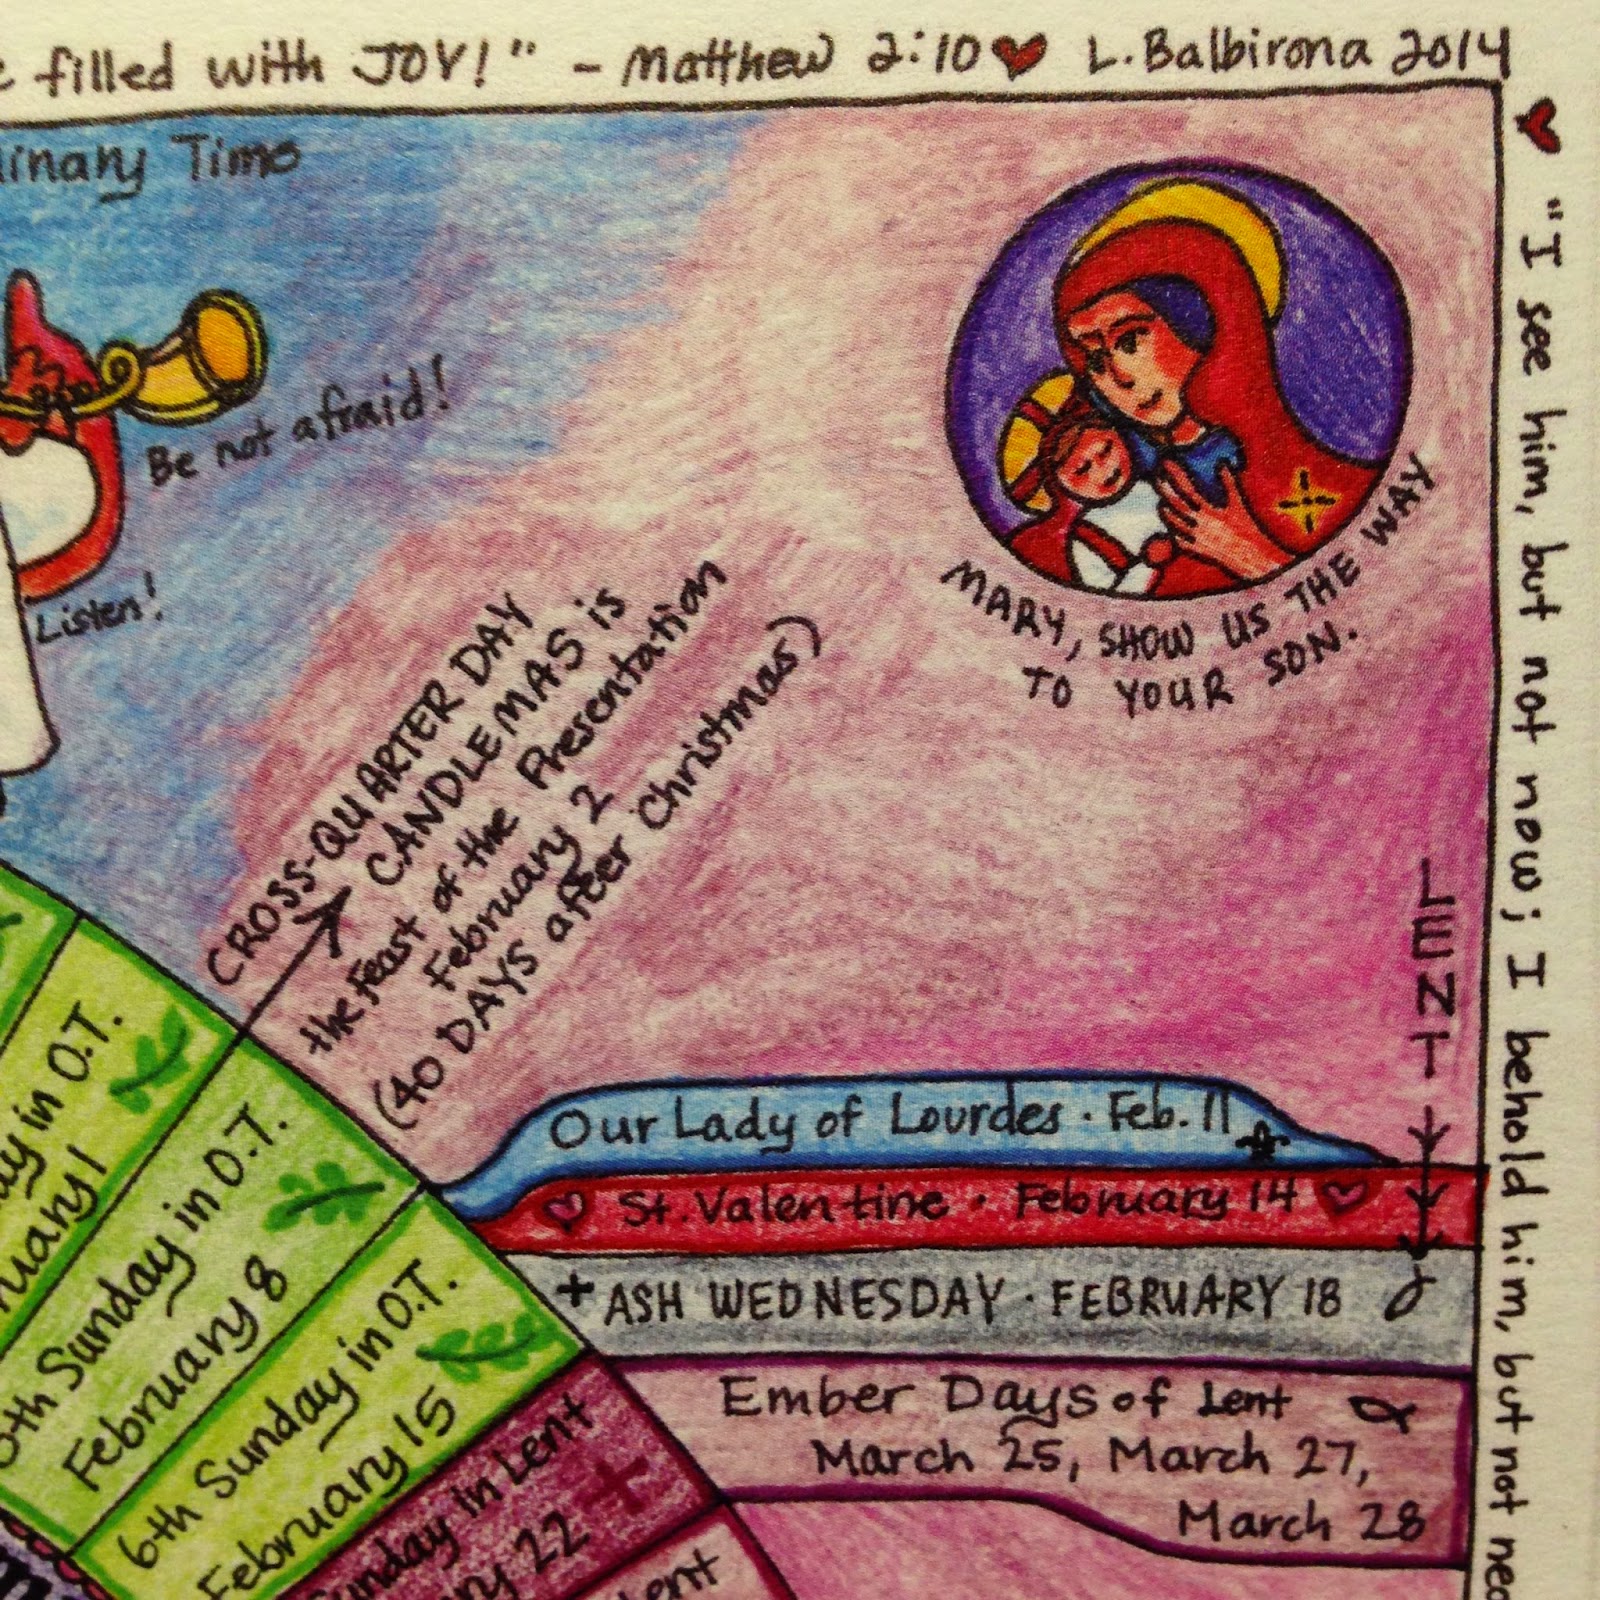 filled with JOY!" - Matthew 2:10 L. Balbirona 2014
Time
Be not afraid!
Listen!
MARY, SHOW US THE WAY
TO YOUR SON.
CROSS-QUARTER DAY
CANDLEMAS is
the Feast of the Presentation
February 2
(40 DAYS after Christmas)
LENT
"I see him, but not now; I behold him, but not
Our Lady of Lourdes · Feb. 11
St. Valentine · February 14
+ ASH WEDNESDAY · FEBRUARY 18
Ember Days of Lent
March 25, March 27,
March 28
in O.T.
1
Sunday in O.T.
February 8
6th Sunday in O.T.
February 15
Sunday in Lent
22
Lent